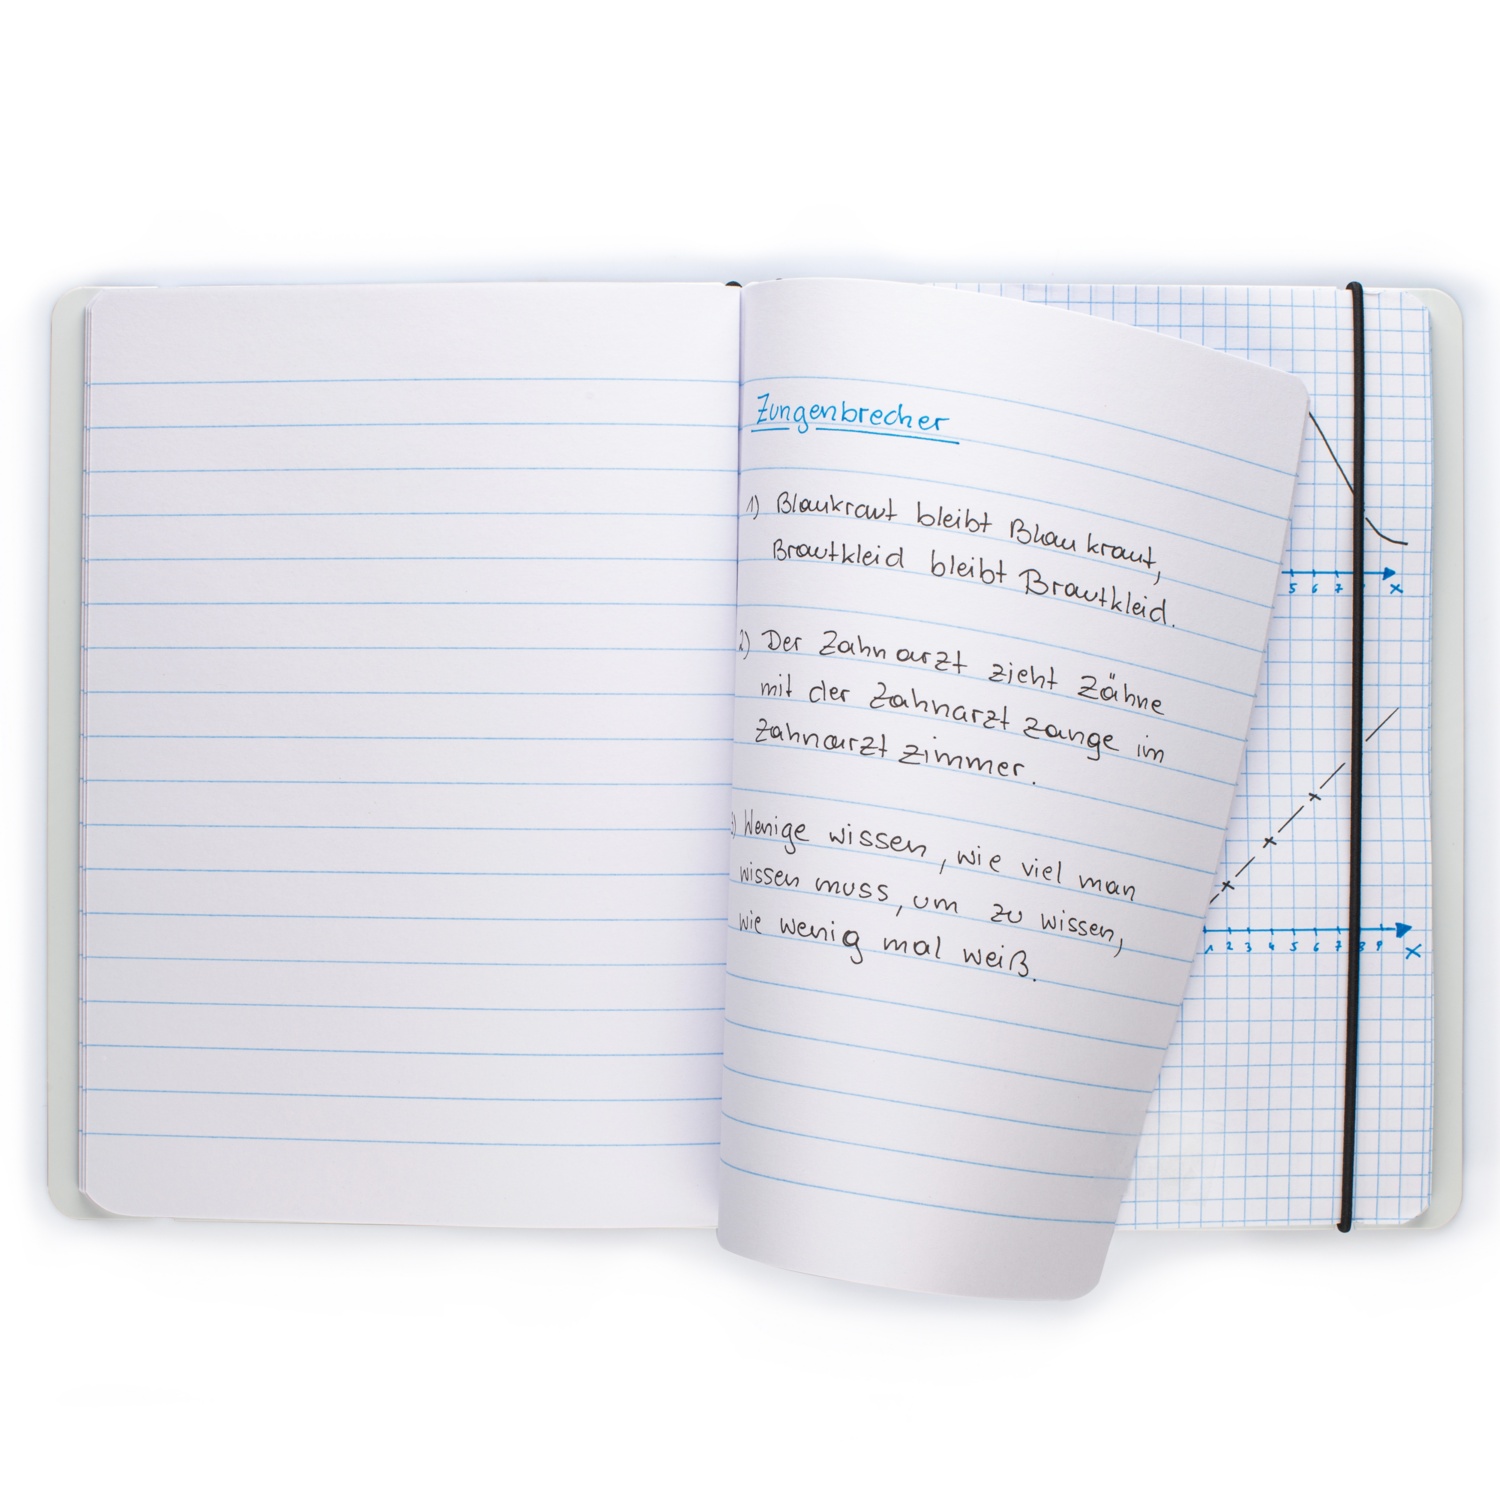 Zungenbrecher
1) Blaukraut bleibt Blaukraut,
Brautkleid bleibt Brautkleid.
2) Der Zahnarzt zieht Zähne
mit der Zahnarztzange im
Zahnarztzimmer.
3) Wenige wissen, wie viel man
wissen muss, um zu wissen,
wie wenig mal weiß.
5 6 7 x
1 2 3 4 5 6 7 8 9 X